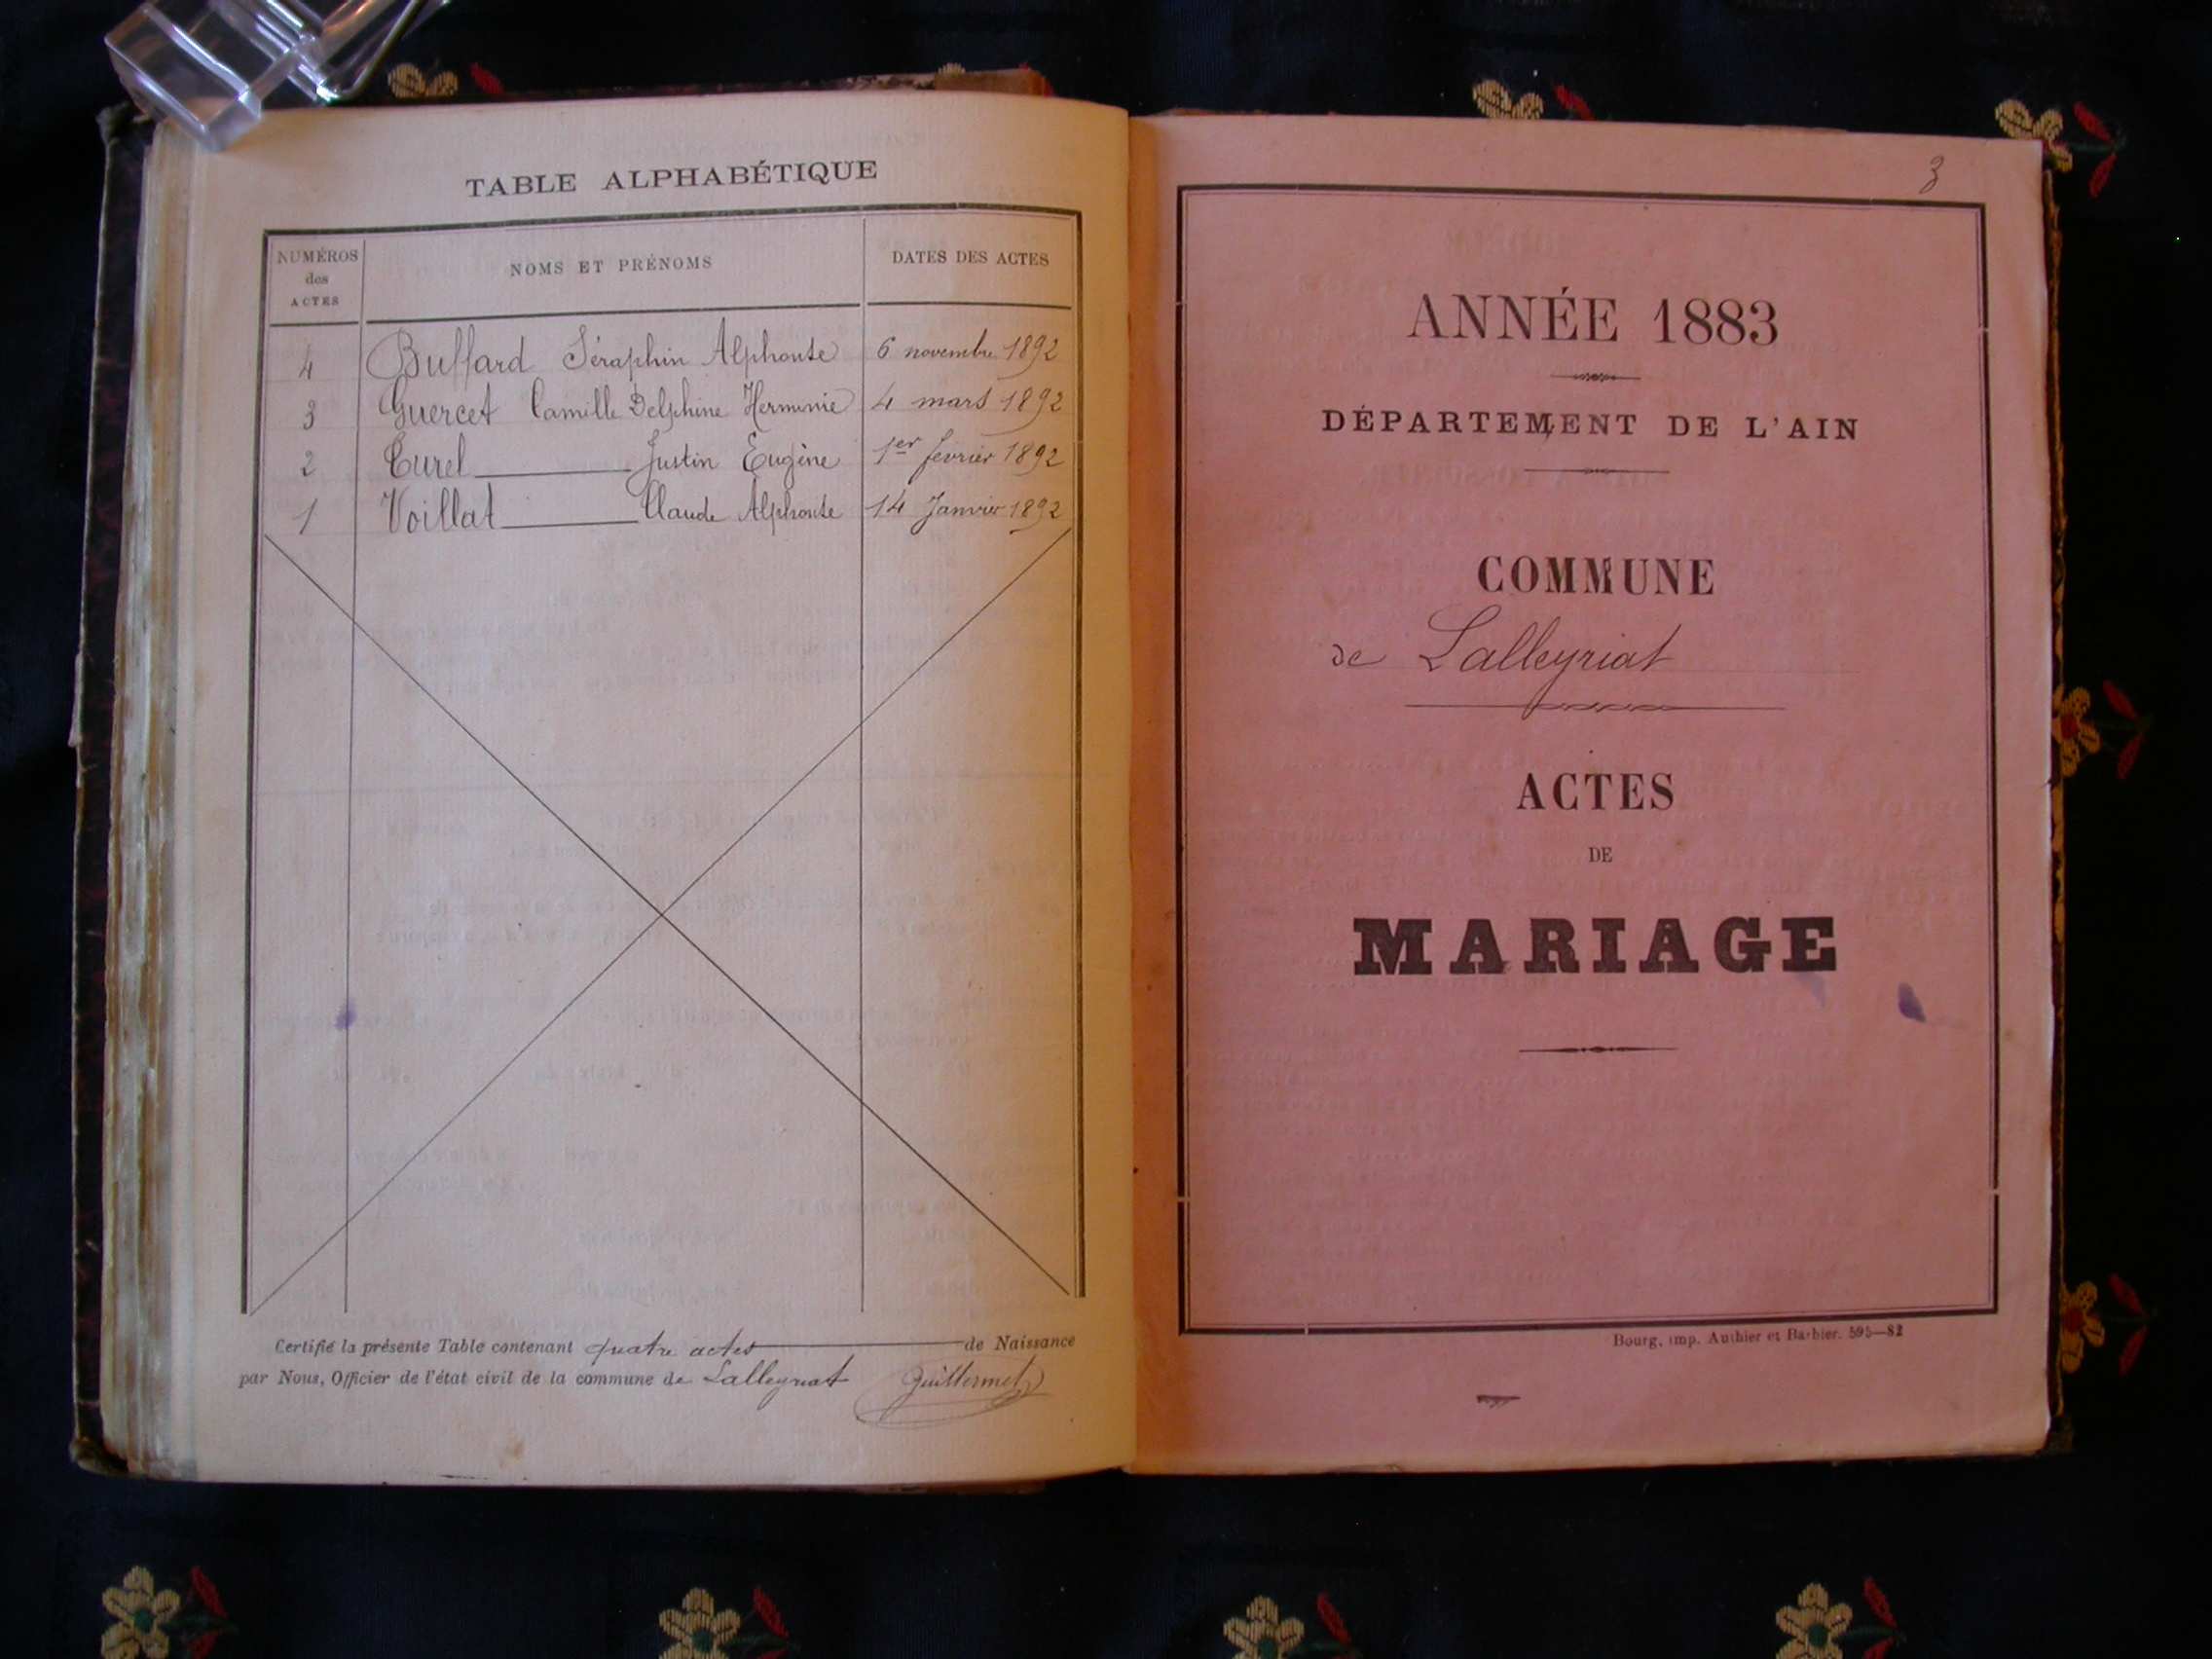 TABLE ALPHABÉTIQUE
NUMÉROS des ACTES NOMS ET PRÉNOMS DATES DES ACTES
4 Buffard Séraphin Alphonse 6 novembre 1892
3 Guercet Camille Delphine Herminie 4 mars 1892
2 Turel Justin Eugène 1er février 1892
1 Voillat Claude Alphonse 14 Janvier 1892
Certifié la présente Table contenant quatre actes de Naissance
par Nous, Officier de l'état civil de la commune de Lalleyriat Guillermet
3
ANNÉE 1883
DÉPARTEMENT DE L'AIN
COMMUNE
de Lalleyriat
ACTES
DE
MARIAGE
Bourg, imp. Authier et Barbier. 595—82